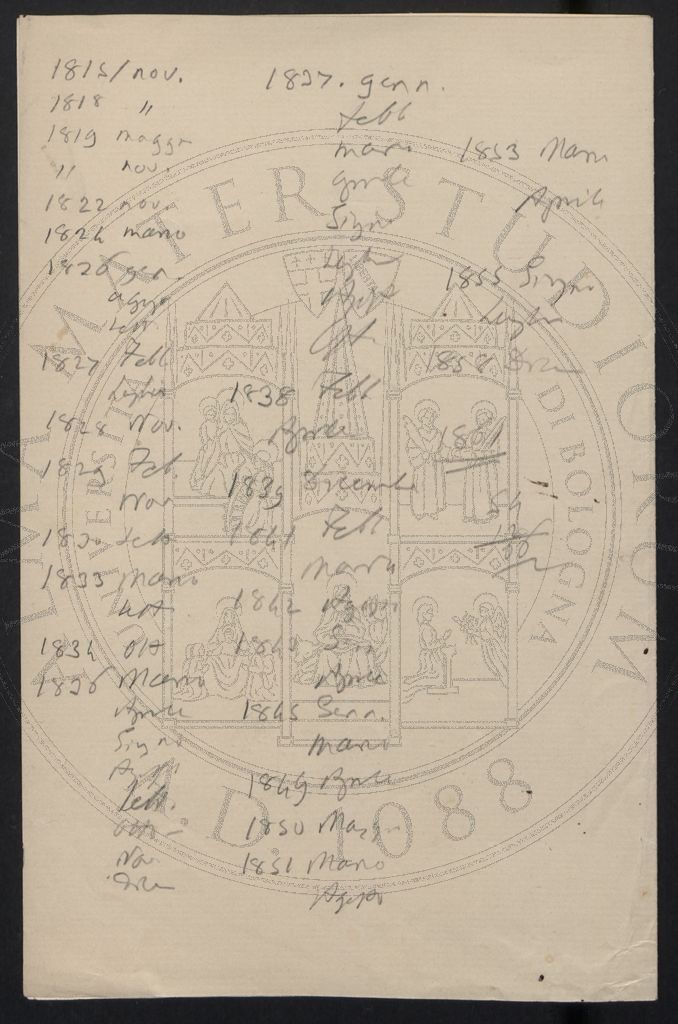 1815/ nov.
1818 "
1819 maggo
" nov.
1822 nov.
1824 marzo
1826 gen.
agypo
sett
1827 Febb
luglio
1828 Nov.
1829 Feb.
Nov
1830 febb
1833 Marzo
sett
1834 ott
1836 Marzo
Aprile
Giugno
Sett.
otto
Nov
Dicem
1837. genn.
febb
marzo
aprile
Giugno
luglio
ott.
1838 Febb
Aprile
1839 Dicembre
1841 Febb
Marzo
1842 Agosto
1843 Giu
Aprile
1845 Genn.
Marzo
1849 Aprile
1850 Maggio
1851 Marzo
Agosto
1853 Marzo
Aprile
1855 Giugno
Luglio
1858 Dicem
1861
54
ALMA MATER STUDIORUM
UNIVERSITÀ DI BOLOGNA
A.D. 1088